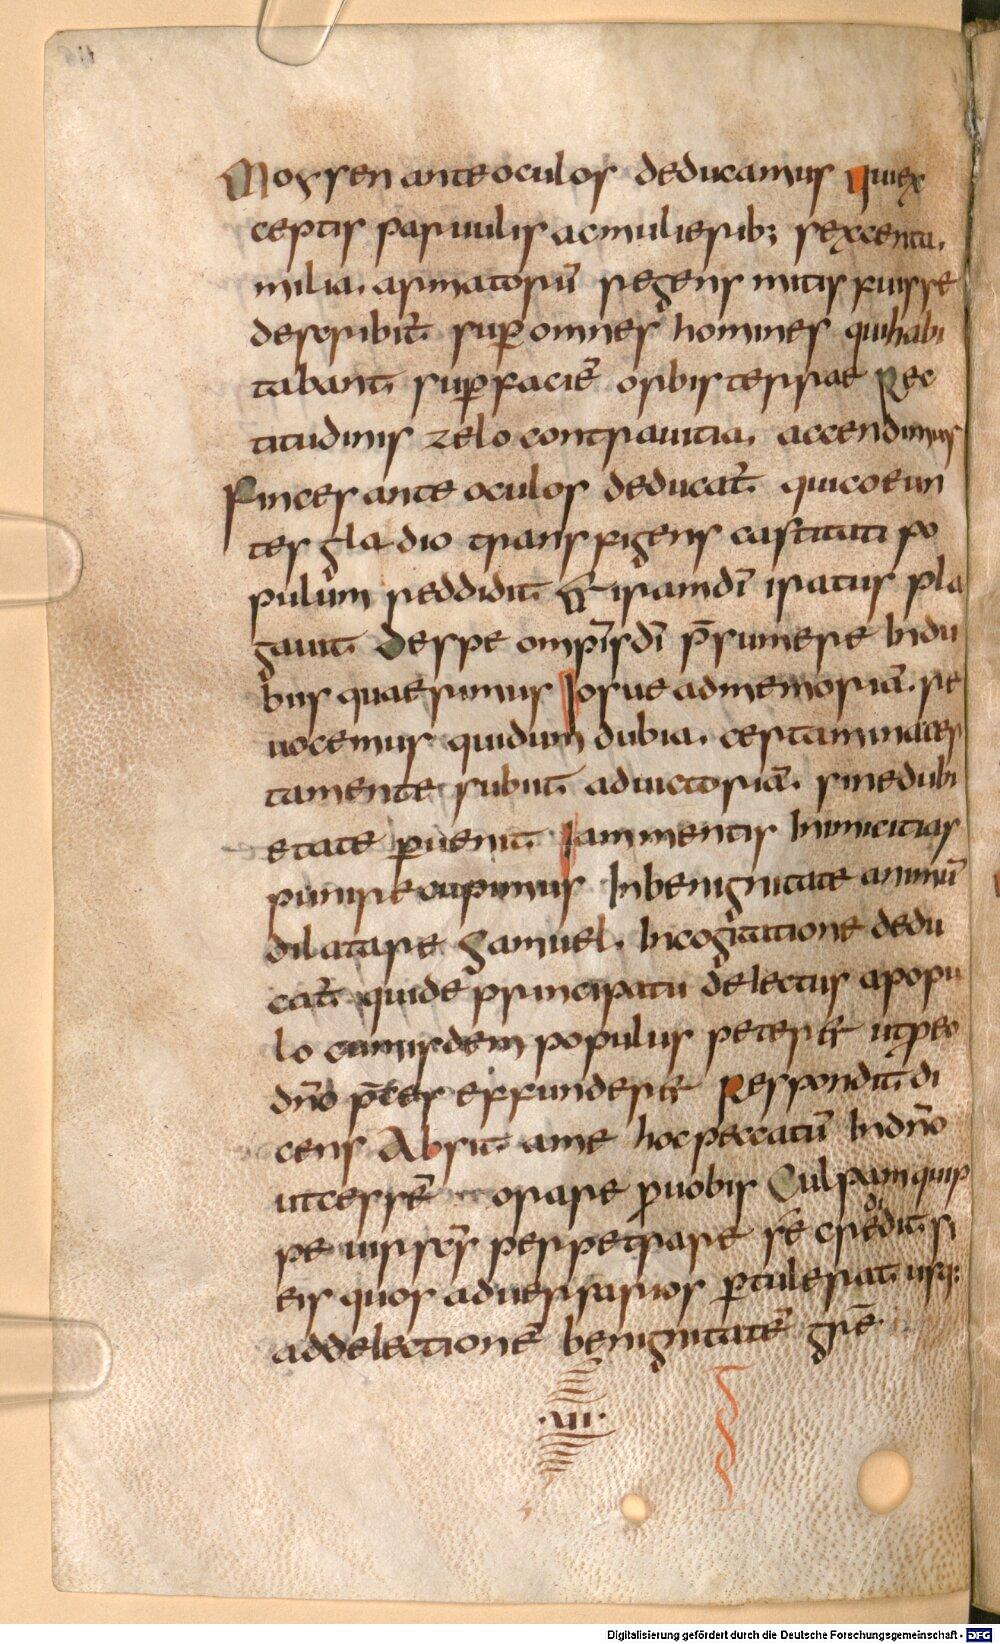 Moysen ante oculos deducamus qui ex
ceptis parvulis ac mulierib; sexcenta
milia armatorū regens mitis fuisse
describit̄ sup omnes homines qui habi
tabant supfaciē orbis terrae Rec
titudinis zelo contra uitia accendimur
Finees ante oculos deducat̄ qui coeun
tes gladio transfigens castitati po
pulum reddidit & iram dī iratus pla
gauit De spe omp̄īs dī p̄sumere In du
biis quaerimus Iosue ad memoriā re
uocemus qui dum dubia certamina cer
ta mente subiit ad uictoriā sine dubi
etate puenit Iam mentis Inimicitias
punire cupimus In benignitate animū
dilatare Samuel In cogitatione dedu
cat̄ qui de principatu delectus a popu
lo cum isdem populus peter& ut p eo
dn̄o p̄ces effunder& Respondit di
cens Absit a me hoc peccatū In dn̄o
ut cessē orare p uobis Culpam quip
pe uir sc̄s perpetrare se credidit si
eis quos aduersarios ptulerat usq;
ad delectionē benignitatē grē
.VII.
Digitalisierung gefördert durch die Deutsche Forschungsgemeinschaft - DFG